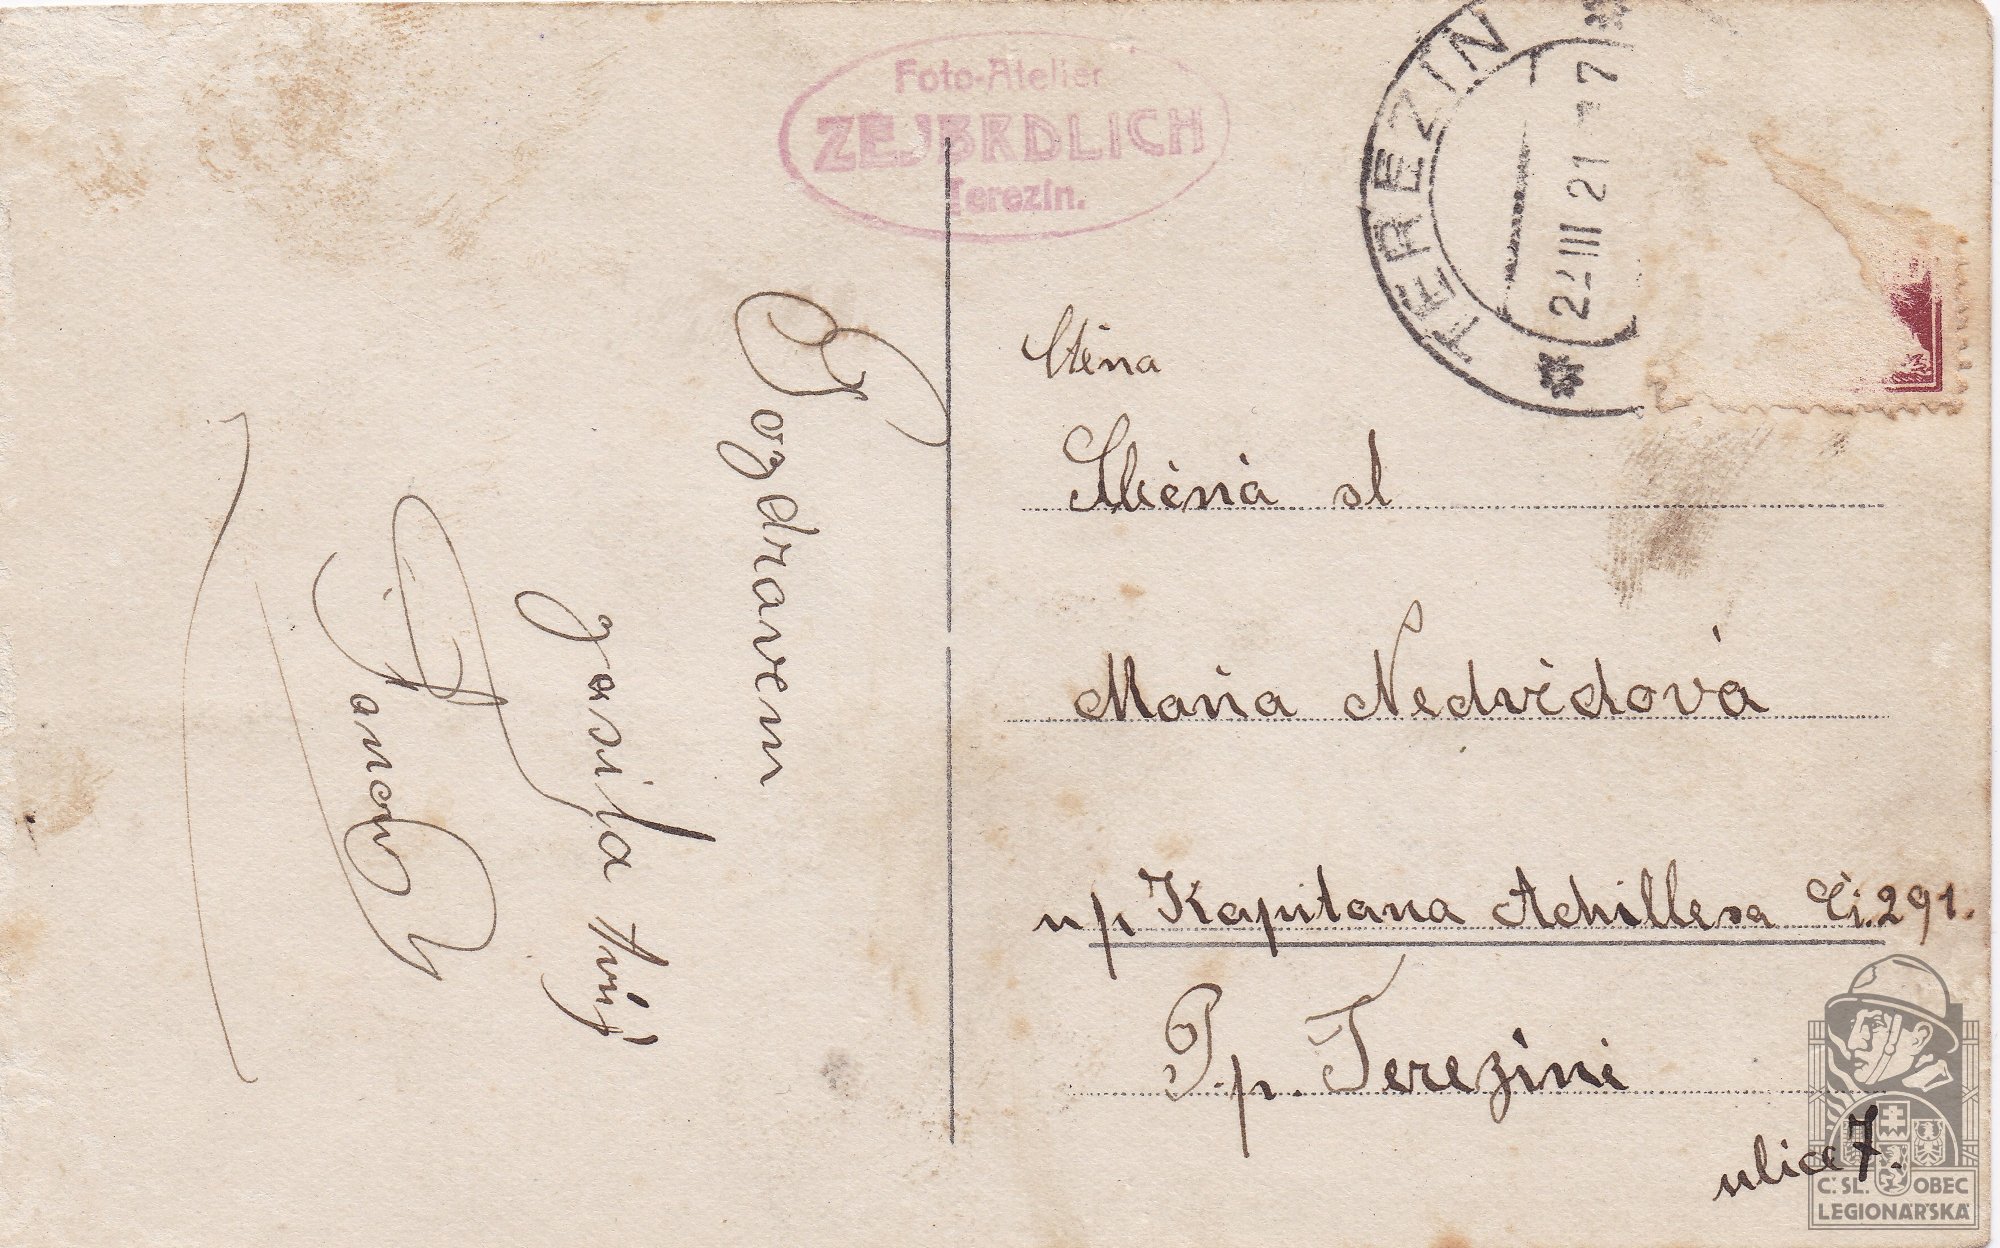 Foto-Atelier
ZEJBRDLICH
Terezín.
TEREZIN
22 III 21 - 7
Pozdravem
Ctěna
sl
Maria Nedvědová
up Kapitana Achillesa Či. 291.
P.p. Terezíně
ulice 7.
Č. SL. OBEC
LEGIONÁŘSKÁ